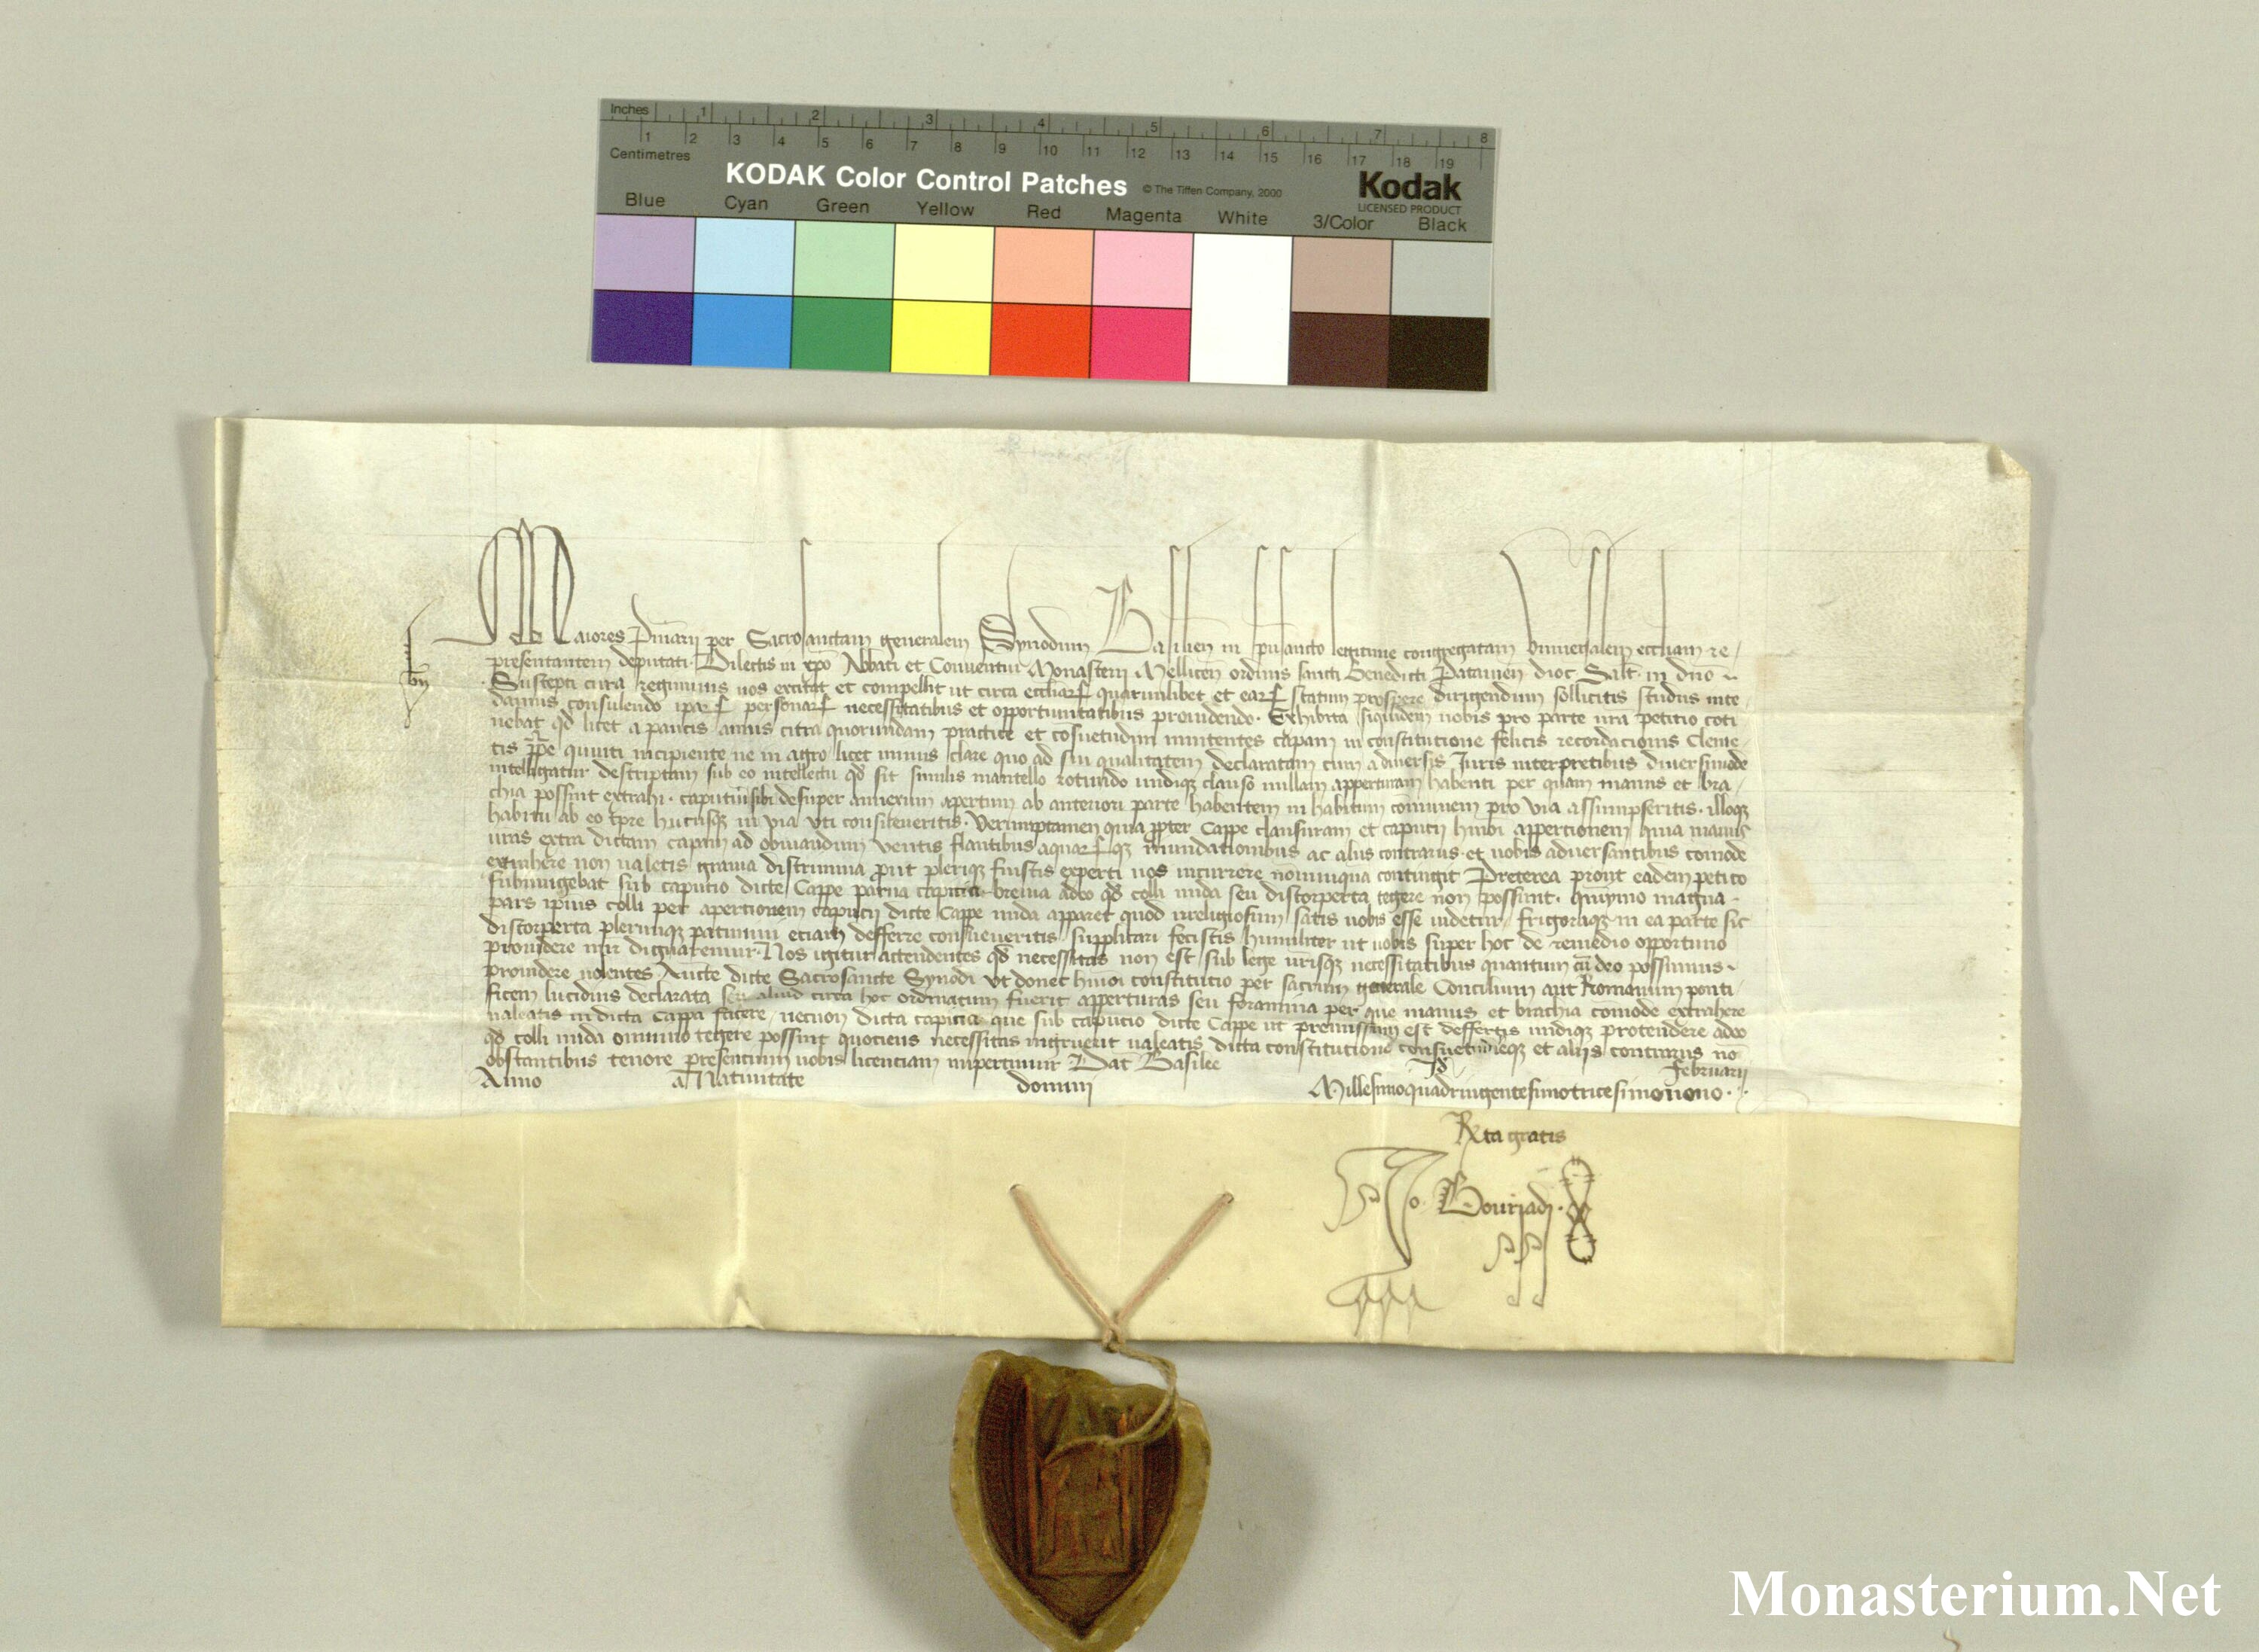 Inches 1 2 3 4 5 6 7 8
1 2 3 4 5 6 7 8 9 10 11 12 13 14 15 16 17 18 19
Centimetres
KODAK Color Control Patches © The Tiffen Company, 2000 Kodak
LICENSED PRODUCT
Blue Cyan Green Yellow Red Magenta White 3/Color Black
Maiores Pniarii per Sacrosanctam generalem Synodum Basilien in spusancto legitime congregatam vniuersalem eccliam re
presentantem deputati Dilectis in xpo Abbati et Conuentui Monasterii Mellicen ordinis sancti Benedicti Patauien dioc Salt in dno
Suscepti cura regiminis nos excitat et compellit ut circa eccliarum quarumlibet et earum statum prospere dirigendum sollicitis studiis inte
damus consulendo ipsarum personarum necessitatibus et opportunitatibus prouidendo Exhibita siquidem nobis pro parte vra petitio coti
nebat qd licet a paucis annis citra quorundam practice et cosuetudini innitentes capam in constitutione felicis recordacionis Cleme
tis ppe quinti incipiente ne in agro licet minus clare quo ad sui qualitatem declaratam cum a diuersis Iuris interpretibus diuersimode
intelligatur descriptam sub eo intellectu qd sit similis mantello rotundo undiqz clauso nullam apperturam habenti per quam manus et bra
chia possint extrahi caputium sibi desuper annexum apertum ab anteriori parte habentem in habitum comunem pro via assumpseritis illoqz
habitu ab eo tpre hucusqz in via vti consueueritis Verumptamen quia ppter Cappe clausuram et caputii hmoi appertionem quia manus
vras extra dictam capam ad obuiandum ventis flantibus aquarumqz inundationibus ac aliis contrariis et uobis aduersantibus comode
extrahere non ualetis grauia discrimina put pleriqz fuistis experti uos incurrere nonnunqua contingit Preterea prout eadem peticio
subiungebat sub caputio dicte Cappe parua capicia breuia adeo qd colli nuda seu discoperta tegere non possunt quinymo magna
pars ipius colli per apertionem caputii dicte Cappe nuda apparet quod irreligiosum satis uobis esse uidetur frigoraqz in ea parte sic
discoperta plerumqz patimini etiam defferre consueueritis supplicari fecistis humiliter ut uobis super hoc de remedio opportuno
prouidere mir dignaremur Nos igitur attendentes qd necessitas non est sub lege vrisqz necessitatibus quantum cu deo possumus
prouidere uolentes Aucte dicte Sacrosancte Synodi Vt donec hmoi constitucio per sacrum generale Concilium aut Romanum ponti
ficem lucidius declarata seu aliud circa hoc ordinatum fuerit apperturas seu foramina per que manus et brachia comode extrahere
ualeatis in dicta Cappa facere necnon dicta capicia que sub caputio dicte Cappe ut premissum est deffertis undiqz protendere adeo
qd colli nuda omnino tegere possint quociens necessitas ingruerit ualeatis dicta constitutione consuetudineqz et aliis contrariis no
obstantibus tenore presentium uobis licenciam impertimur Dat Basilee februarii
Anno a Natiuitate domini Millesimoquadringentesimotricesimonono
Rta gratis
Jo. Bouriadi
Monasterium.Net